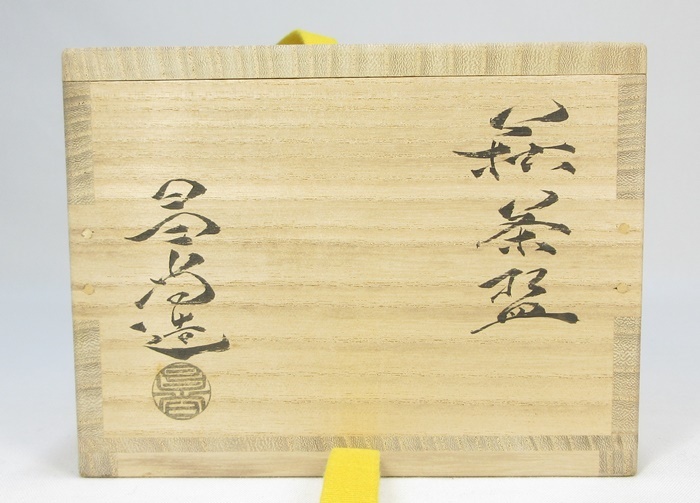 萩茶盌
昌尚造
昌尚